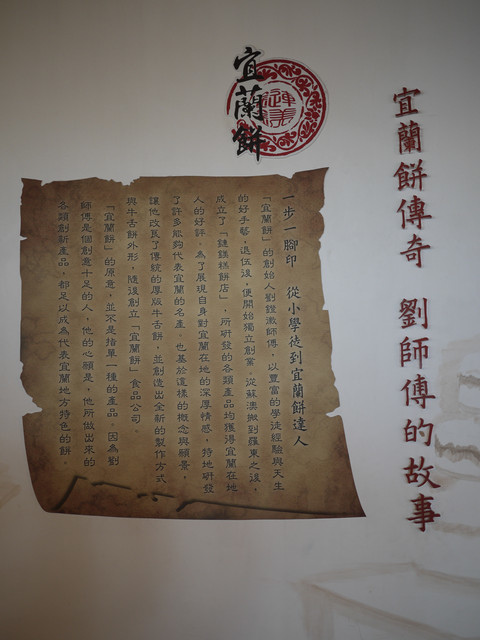 宜蘭餅傳奇 劉師傅的故事
宜蘭餅
一步一腳印 從小學徒到宜蘭餅達人
「宜蘭餅」的創始人劉鐙徽師傅，以豐富的學徒經驗與天生
的好手藝，退伍後，便開始獨立創業。從蘇澳搬到羅東之後，
成立了「鏈鎂糕餅店」，所研發的各類產品均獲得宜蘭在地
人的好評。為了展現自身對宜蘭在地的深厚情感，持地研發
了許多能夠代表宜蘭的名產。也基於這樣的概念與願景，
讓他改良了傳統的厚版牛舌餅，並創造出全新的製作方式
與牛舌餅外形，隨後創立「宜蘭餅」食品公司。
「宜蘭餅」的原意，並不是指單一種的產品。因為劉
師傅是個創意十足的人，他的心願是，他所做出來的
各類創新產品，都足以成為代表宜蘭地方特色的餅。